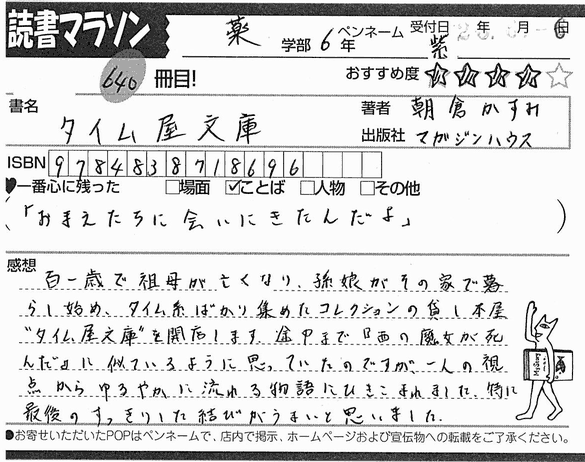 読書マラソン
薬 学部 6 年 ペンネーム 紫 受付日 年 月 日
640 冊目!
おすすめ度 ★★★★☆
書名 タイム屋文庫
著者 朝倉かすみ
出版社 マガジンハウス
ISBN 9784838718696
♥一番心に残った □場面 ☑ことば □人物 □その他
(「おまえたちに会いにきたんだよ」)
感想
百一歳で祖母が亡くなり、孫娘がその家で暮
らし始め、タイム系ばかり集めたコレクションの貸し本屋
"タイム屋文庫"を開店します。途中まで『西の魔女が死
んだ』に似ているように思っていたのですが、一人の視
点からゆるやかに流れる物語にひきこまれました。特に
最後のすっきりした結びがうまいと思いました。
●お寄せいただいたPOPはペンネームで、店内で掲示、ホームページおよび宣伝物への転載をご了承ください。